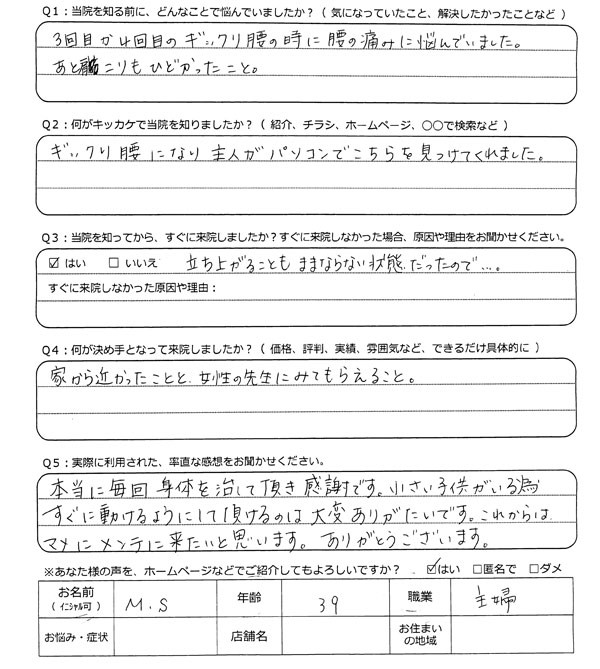 Q1：当院を知る前に、どんなことで悩んでいましたか？（ 気になっていたこと、解決したかったことなど ）
3回目か4回目のギックリ腰の時に腰の痛みに悩んでいました。
あと コリもひどかったこと。
Q2：何がキッカケで当院を知りましたか？（ 紹介、チラシ、ホームページ、○○で検索など ）
ギックリ腰になり主人がパソコンでこちらを見つけてくれました。
Q3：当院を知ってから、すぐに来院しましたか？すぐに来院しなかった場合、原因や理由をお聞かせください。
☑ はい □ いいえ 立ち上がることもままならない状態だったので…。
すぐに来院しなかった原因や理由：
Q4：何が決め手となって来院しましたか？（ 価格、評判、実績、雰囲気など、できるだけ具体的に ）
家から近かったことと、女性の先生にみてもらえること。
Q5：実際に利用された、率直な感想をお聞かせください。
本当に毎回身体を治して頂き感謝です。小さい子供がいる為
すぐに動けるようにして頂けるのは大変ありがたいです。これからは
マメにメンテに来たいと思います。ありがとうございます。
※あなた様の声を、ホームページなどでご紹介してもよろしいですか？ ☑はい □匿名で □ダメ
お名前（イニシャル可） M.S 年齢 39 職業 主婦
お悩み・症状 店舗名 お住まいの地域